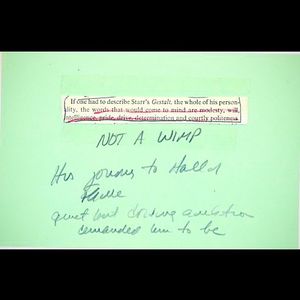 If one had to describe Starr's Gestalt, the whole of his person-
ality, the words that would come to mind are modesty, will,
intelligence, pride, drive, determination and courtly politeness.
NOT A WIMP
His journey to Hall of
Fame
quiet but driving ambition
demanded him to be